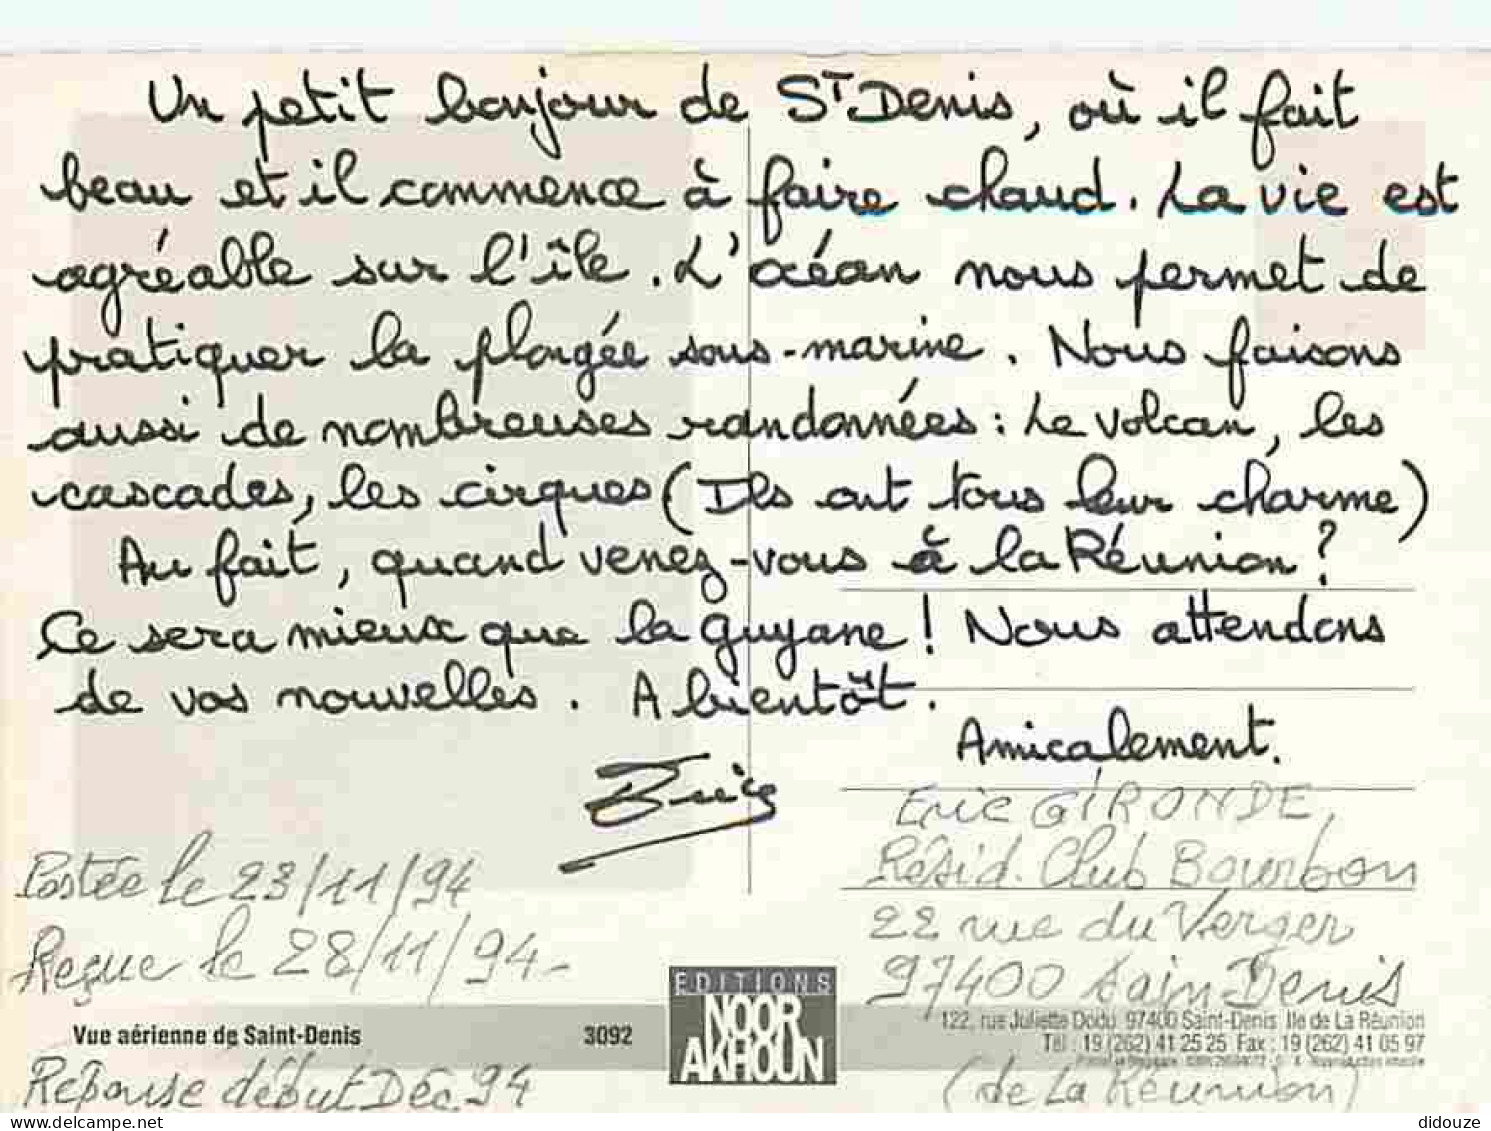 Un petit bonjour de S^T Denis, où il fait
beau et il commence à faire chaud. La vie est
agréable sur l'île. L'océan nous permet de
pratiquer la plongée sous-marine. Nous faisons
aussi de nombreuses randonnées : Le Volcan, les
cascades, les cirques (Ils ont tous leur charme)
Au fait, quand venez-vous à la Réunion ?
Ce sera mieux que la Guyane ! Nous attendons
de vos nouvelles. A bientôt.
Amicalement.
Eric
Eric GIRONDE,
Résid. Club Bourbon
22 rue du Verger
97400 Sain-Denis
(de La Réunion)
Postée le 23/11/94
Reçue le 28/11/94-
Vue aérienne de Saint-Denis
3092
EDITIONS
NOOR
AKHOUN
122, rue Juliette Dodu 97400 Saint-Denis Ile de La Réunion
Tél : 19 (262) 41 25 25 Fax : 19 (262) 41 05 97
Réponse début Déc. 94
delcampe.net
didouze